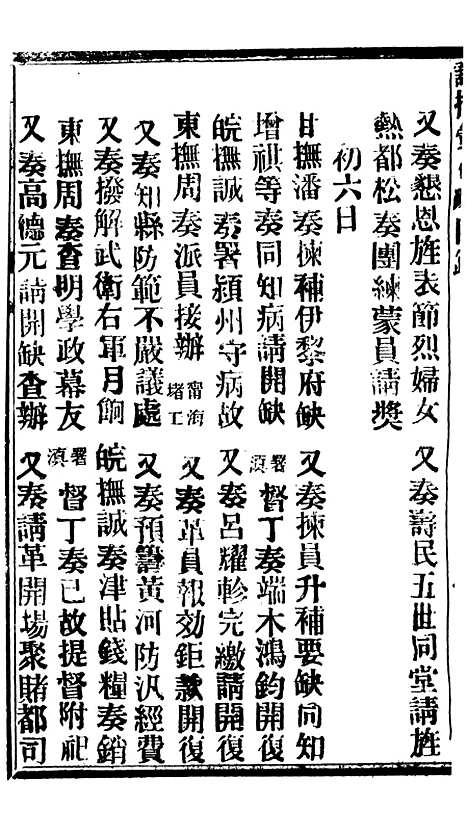 又奏懇恩旌表節烈婦女　又奏壽民五世同堂請旌
熱都松奏團練蒙員請獎
初六日
甘撫潘奏揀補伊黎府缺　又奏揀員升補要缺同知
增祺等奏同知病請開缺　署滇督丁奏端木鴻鈞開復
皖撫誠奏署潁州守病故　又奏呂耀軫完繳請開復
東撫周奏派員接辦甯海堵工　又奏革員報効鉅款開復
又奏知縣防範不嚴議處　又奏預籌黃河防汛經費
又奏撥解武衛右軍月餉　皖撫誠奏津貼錢糧奏銷
東撫周奏查明學政幕友　署滇督丁奏已故提督附祀
又奏高德元請開缺查辦　又奏請革開場聚賭都司